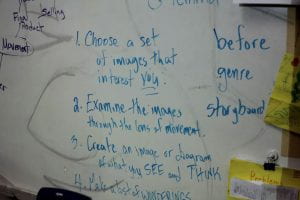 Selling
Final
Product
Movement
1. Choose a set
of images that
interest you.
2. Examine the images
through the lens of movement.
3. Create an image or diagram
of what you SEE and THINK
4. Make a list of WONDERINGS
before
genre
storyboard
Problem